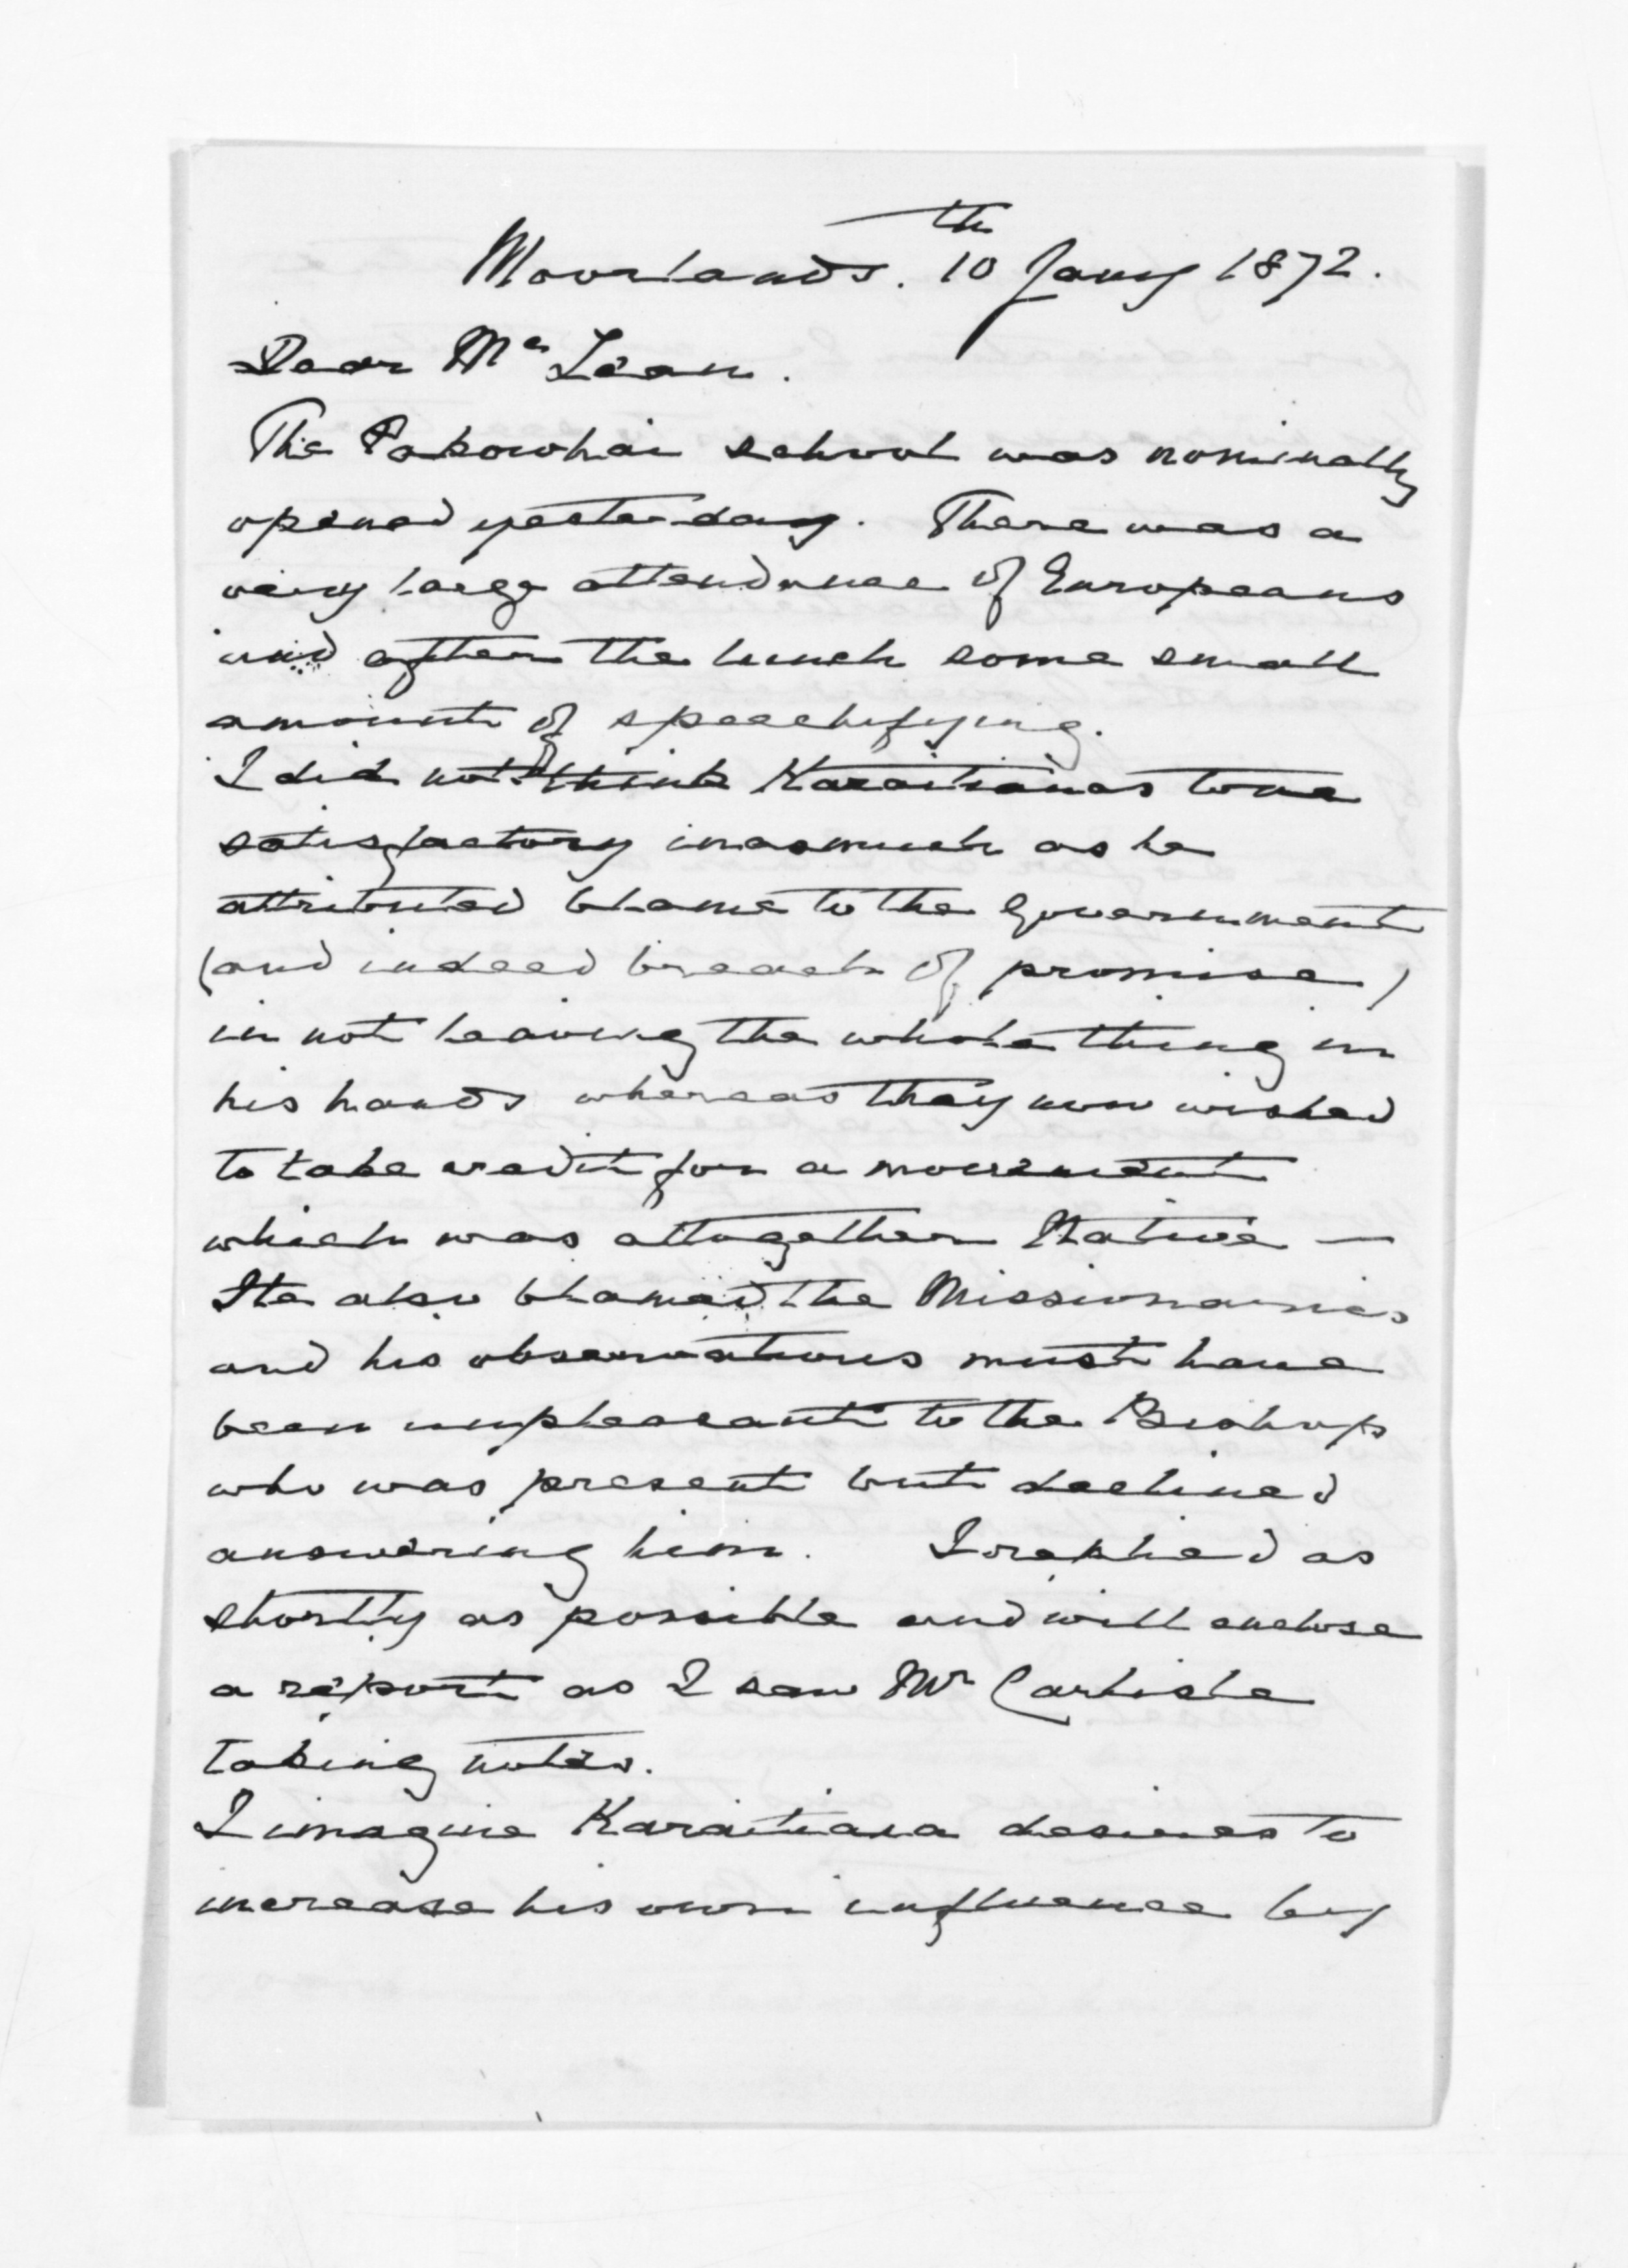 Moorlands. 10th Jany 1872.
Dear McLean.
The Pakowhai school was nominally
opened yesterday. There was a
very large attendance of Europeans
and after the lunch some small
amount of speechifying.
I did not think Karaitianas tone
satisfactory inasmuch as he
attributed blame to the Government
(and indeed breach of promise)
in not leaving the whole thing in
his hands whereas they now wished
to take credit for a movement
which was altogether Native —
He also blamed the Missionaries
and his observations must have
been unpleasant to the Bishop
who was present but declined
answering him. I replied as
shortly as possible and will enclose
a report as I saw Mr Carlisle
taking notes.
I imagine Karaitiana desires to
increase his own influence by